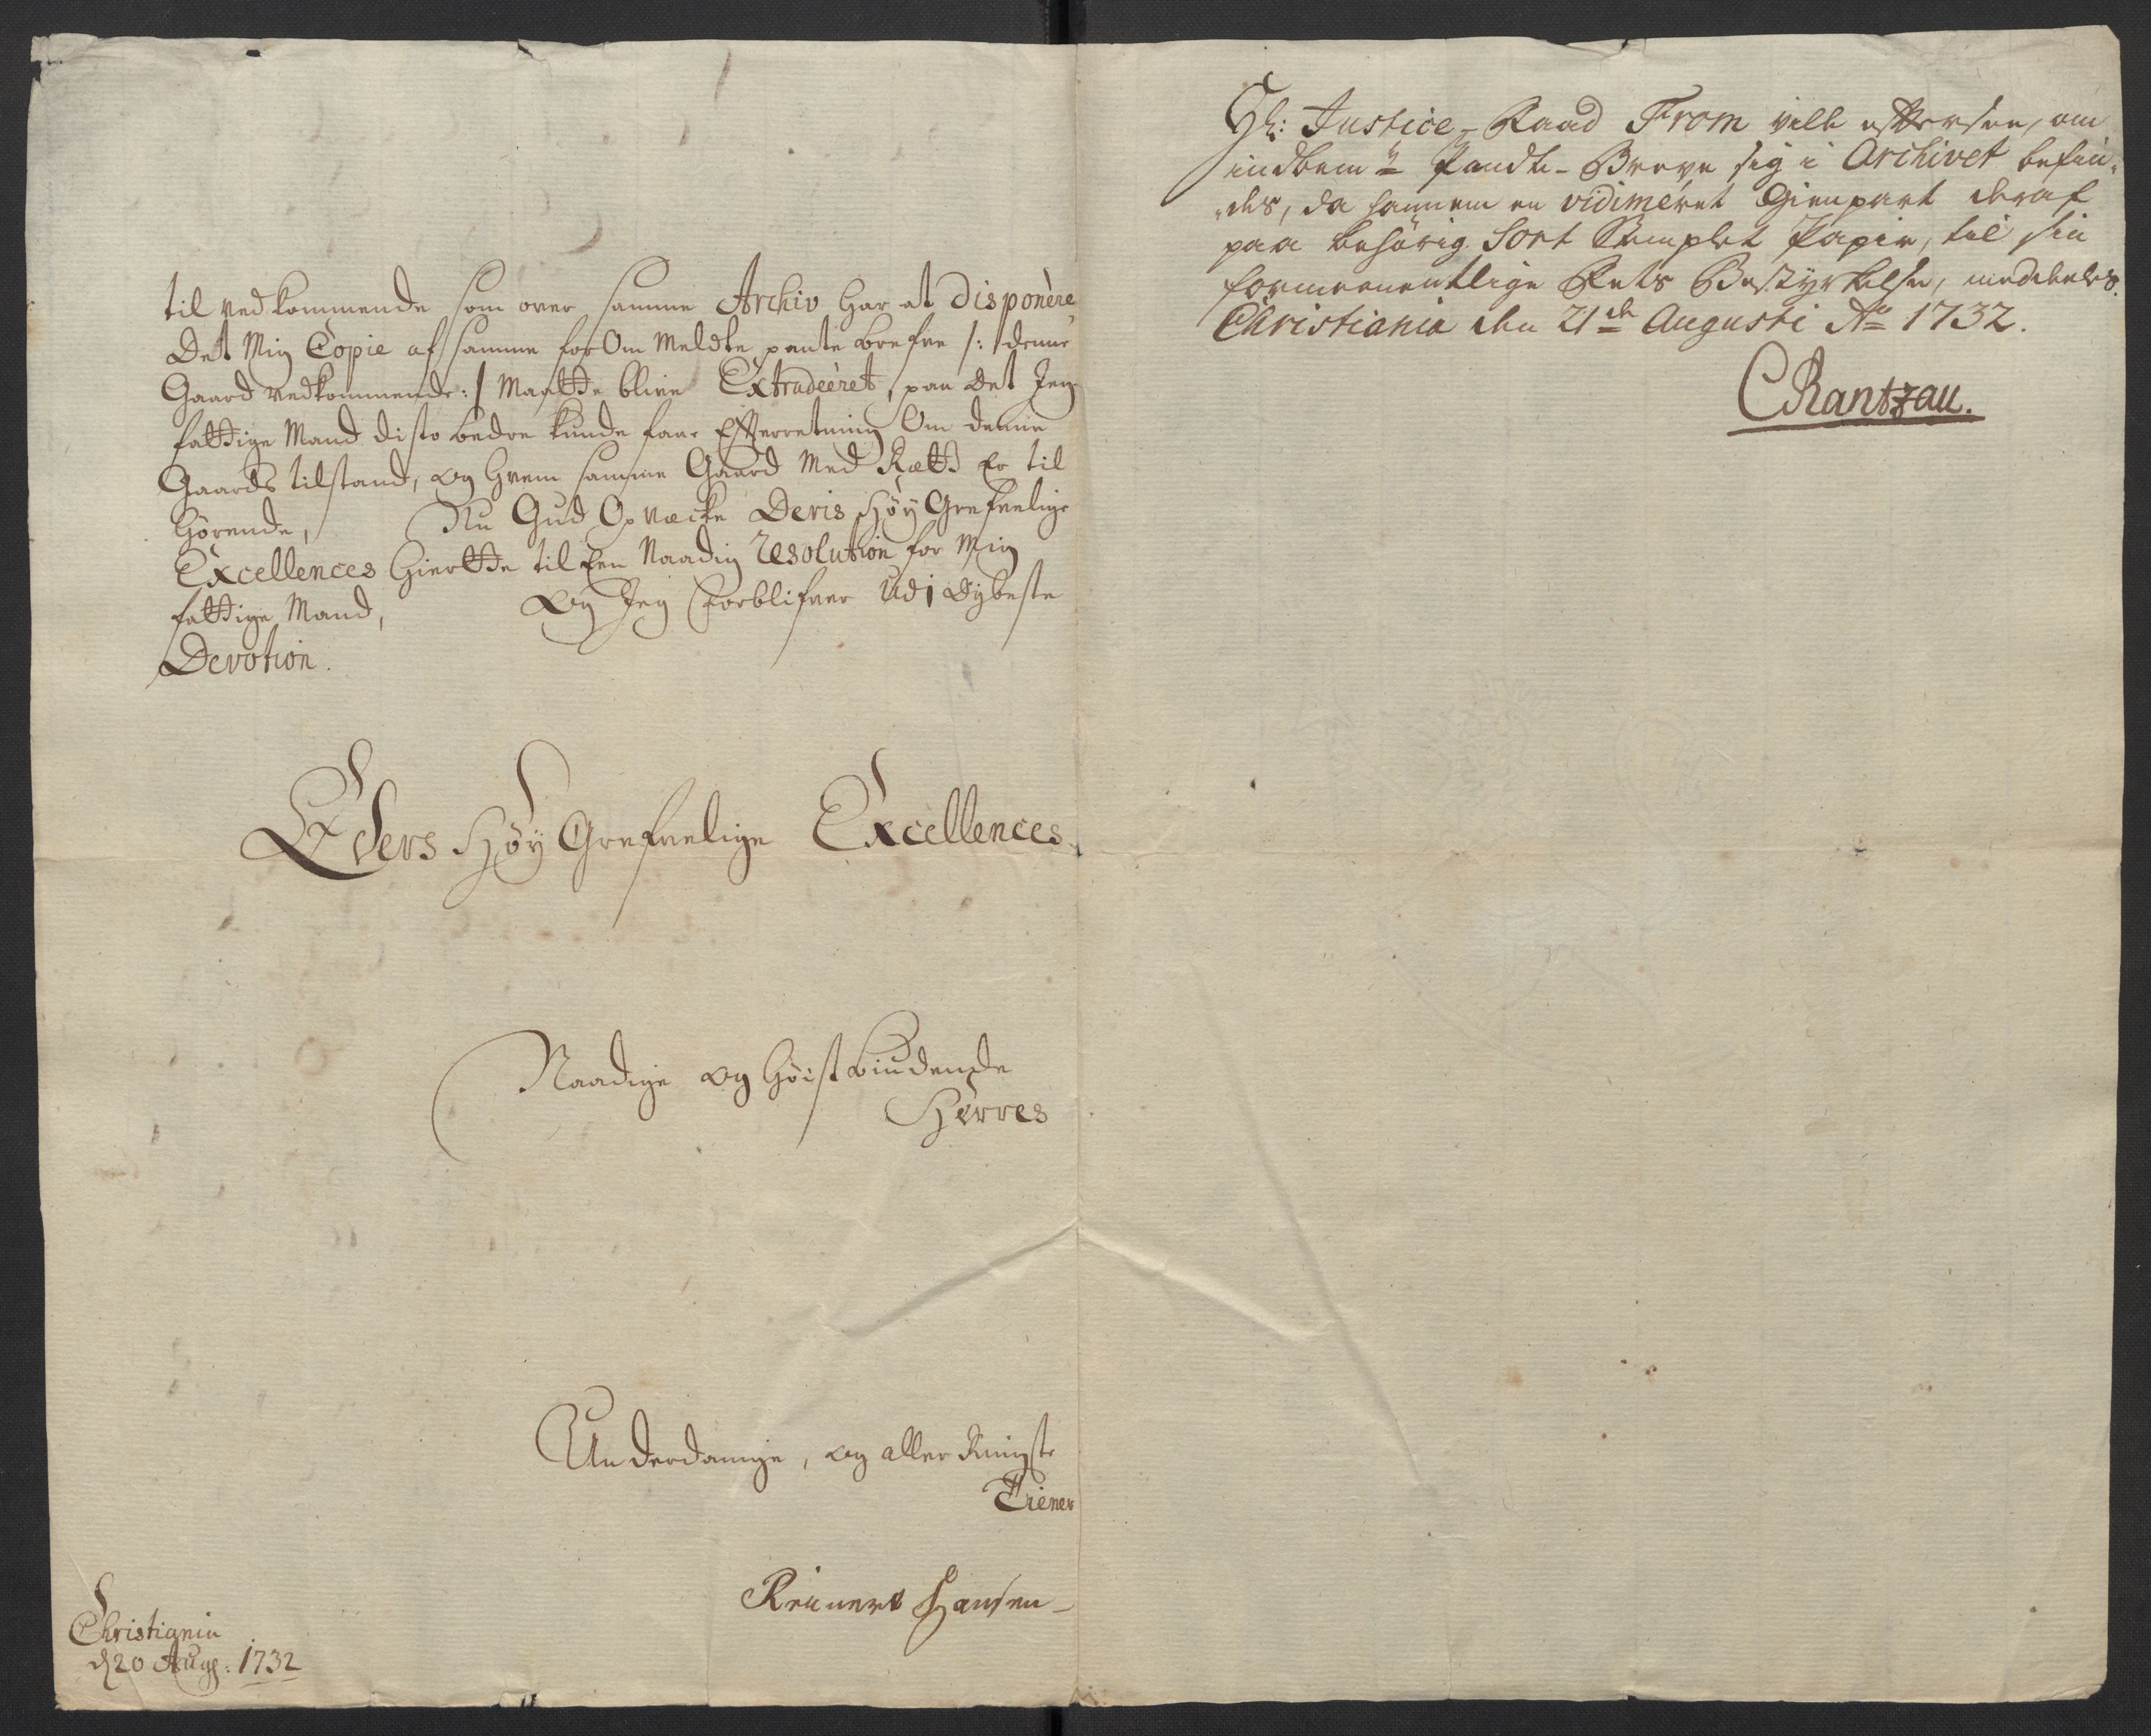 til vedkommende som over samme Archiv har at disponère
Det Mig Copie af samme for Om Meldte pante brefve /: denne
Gaard vedkommende :/ Maatte blive Extradeèret, paa det Jeg
fattige Mand disto bedre kunde faae Efterretning Om denne
Gaards tilstand, og hvem samme Gaard Med Rætt er til
hørende, Nu Gud Opvæcke Deris Høy Grefvelige
Excellences Hiertte til Een Naadig resolution for Mig
fattige Mand, Og Jeg forblifver Udi dybeste
Devotion.
Eders Høy Grefvelige Excellences
Naadige og høist biudende
Herres
Underdanige, og aller Ringste
Tiener
Reinert Hansen
Christiania
d 20 Aug: 1732
Hr: Justice-Raad From vilde eftersee, om
indbem.te Pandte-Breve sig i Archivet befin-
des, da hannem en vidimeret Gienpart deraf
paa behørig Sort Stemplet Papir, til sin
formeenentlige Rets Bestyrkelse, meddeeles.
Christiania den 21de Augusti Ao 1732.
CRantzau.